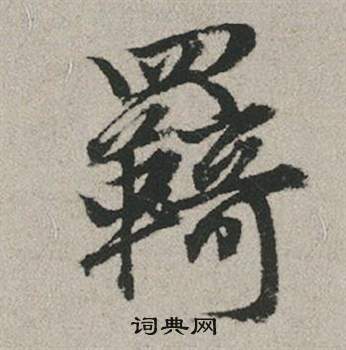 羇
词典网